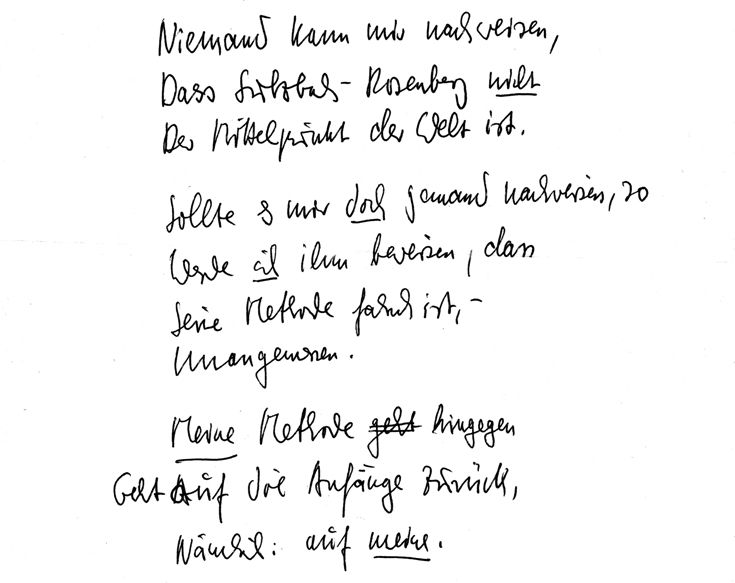 Niemand kann mir nachweisen,
Dass Sulzbach-Rosenberg nicht
Der Mittelpunkt der Welt ist.
Sollte es mir doch jemand nachweisen, so
Werde ich ihm beweisen, dass
Seine Methode falsch ist, -
Unangemessen.
Meine Methode geht hingegen
Geht Auf die Anfänge zurück,
Nämlich: auf meine.